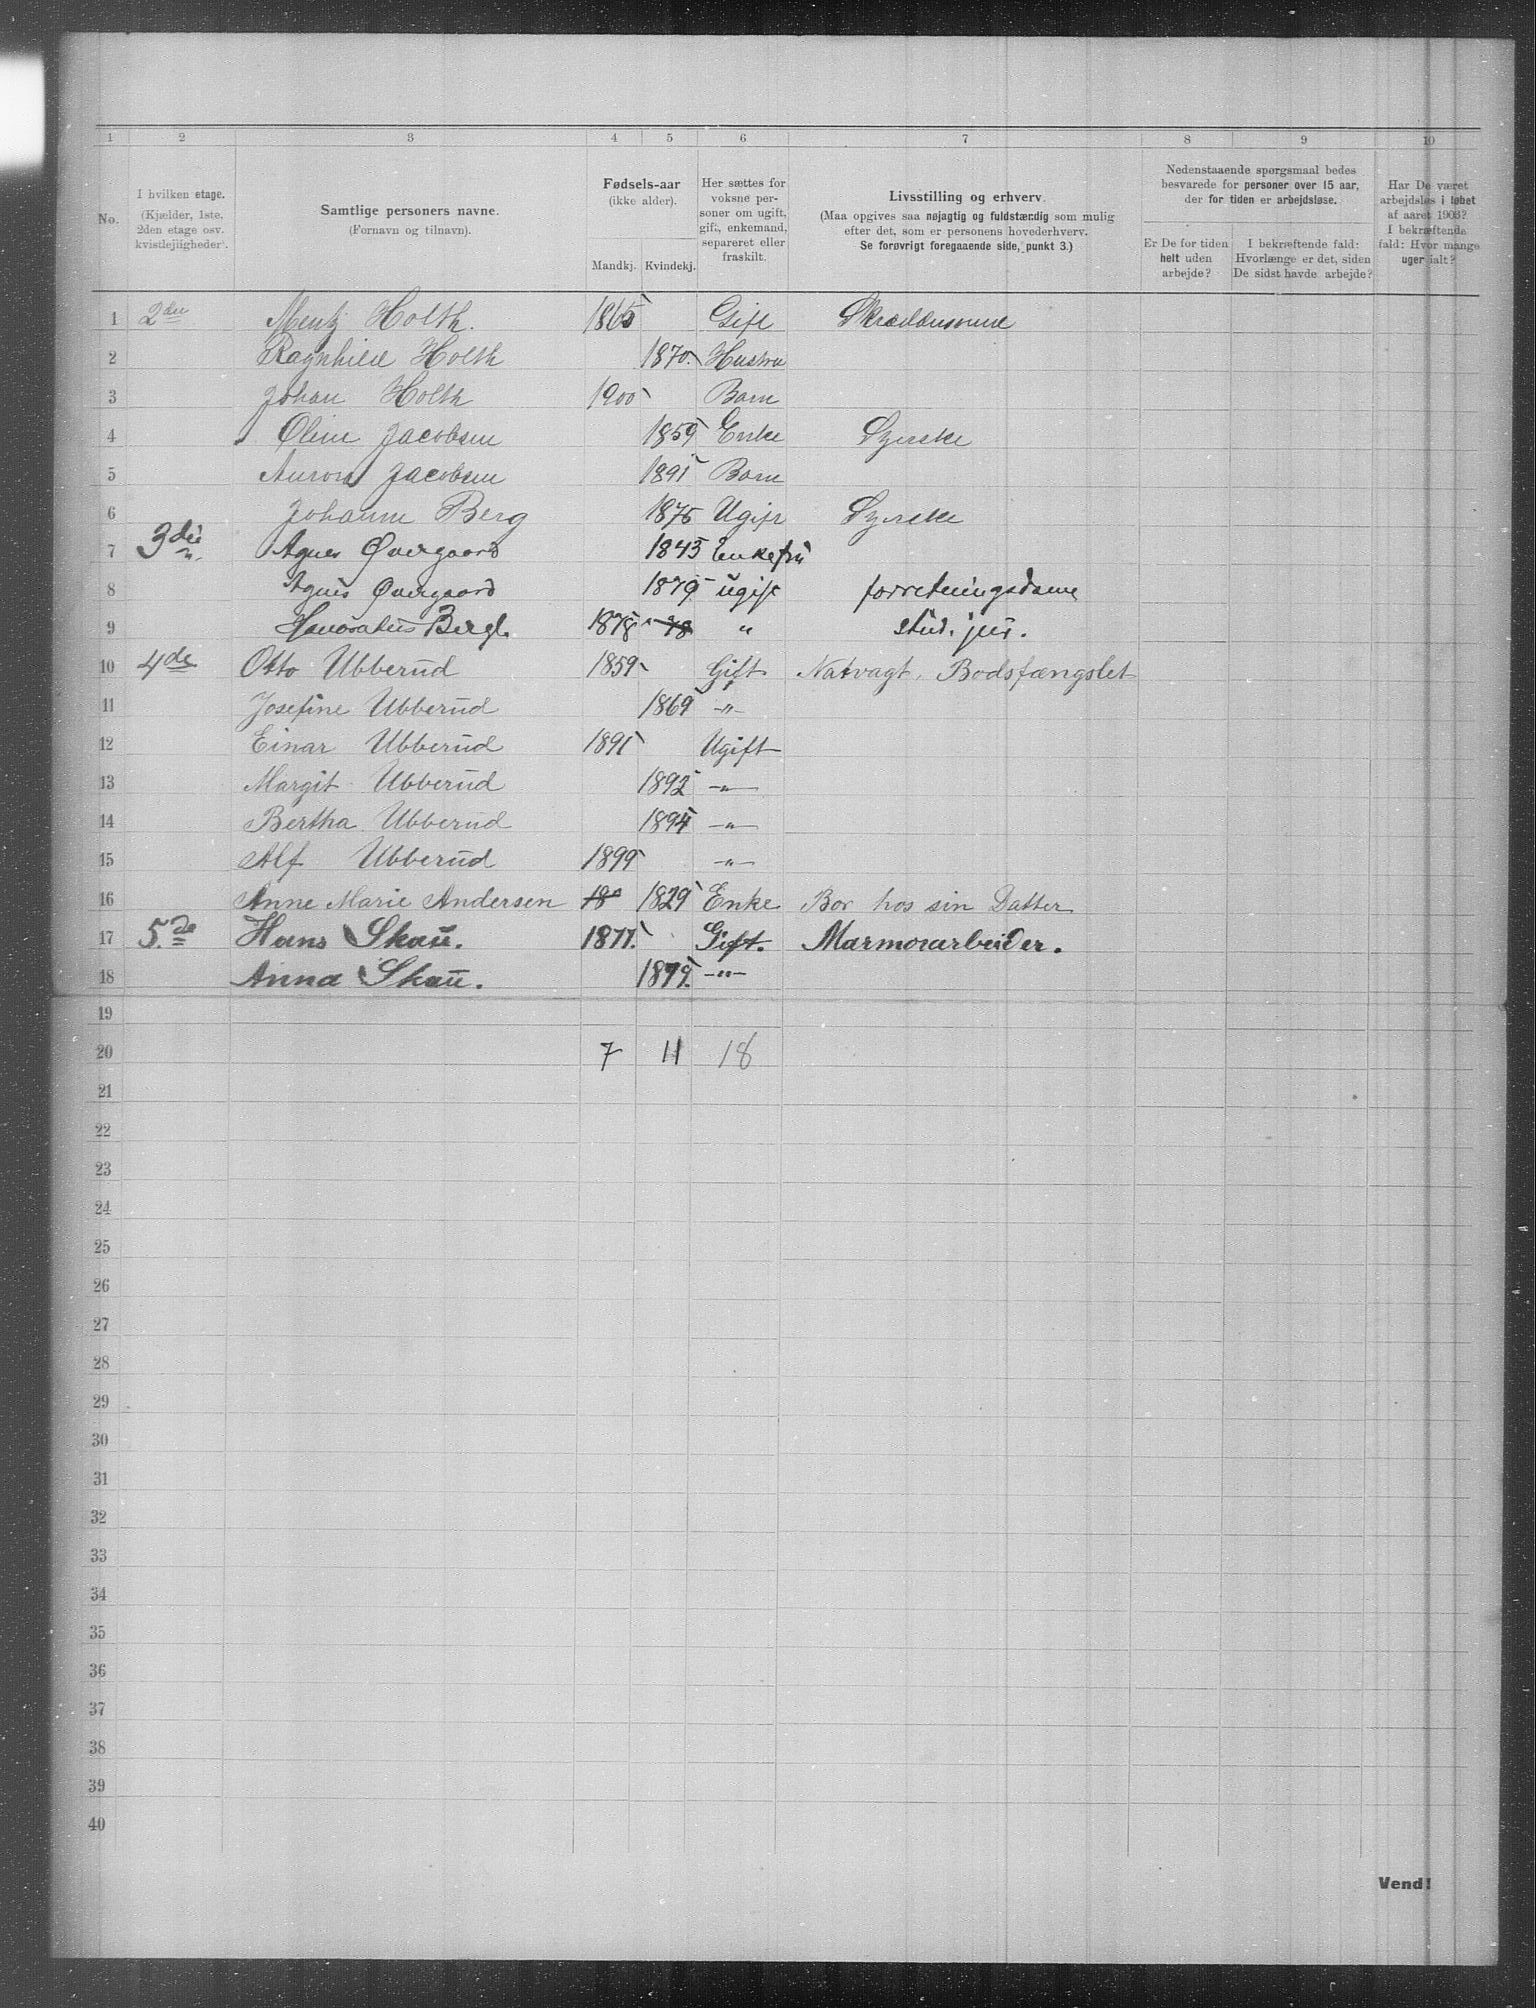 1 2 3 4 5 6 7 8 9 10
No.
I hvilken etage.
(Kjælder, 1ste,
2den etage osv.
kvistlejligheder).
Samtlige personers navne.
(Fornavn og tilnavn).
Fødsels-aar
(ikke alder).
Mandkj. Kvindekj.
Her sættes for
voksne per-
soner om ugift,
gift, enkemand,
separeret eller
fraskilt.
Livsstilling og erhverv.
(Maa opgives saa nøjagtig og fuldstændig som mulig
efter det, som er personens hovederhverv.
Se forøvrigt foregaaende side, punkt 3.)
Nedenstaaende spørgsmaal bedes
besvarede for personer over 15 aar,
der for tiden er arbejdsløse.
Er De for tiden
helt uden
arbejde?
I bekræftende fald:
Hvorlænge er det, siden
De sidst havde arbejde?
Har De været
arbejdsløs i løbet
af aaret 1903?
I bekræftende
fald: Hvor mange
uger ialt?
1 2den Mentz Holth. 1865 Gift
2 Ragnhild Holth 1870. Hustru
3 Johan Holth 1900 Barn
4 Oline Jacobsen 1859 Enke Syerske
5 Aurora Jacobsen 1891 Barn
6 Johanne Berg 1875 Ugift Syerske
7 3die Agnes Øvergaard 1843 Enkefru
8 Agnes Øvergaard 1879 ugift forretningsdame
9 Honoratus Bergh. 1878 78 " stud. jur.
10 4de Otto Ubberud 1859 Gift Natvagt, Bodsfængslet
11 Josefine Ubberud 1869 -"-
12 Einar Ubberud 1891 Ugift
13 Margit Ubberud 1892 -"-
14 Bertha Ubberud 1894 -"-
15 Alf Ubberud 1899 -"-
16 Anne Marie Andersen 18 1829 Enke Bor hos sin Datter
17 5.de Hans Skau. 1877. Gift. Marmorarbeider.
18 Anna Skau. 1879. -"-
19
20 7 11 18
21
22
23
24
25
26
27
28
29
30
31
32
33
34
35
36
37
38
39
40
Vend!